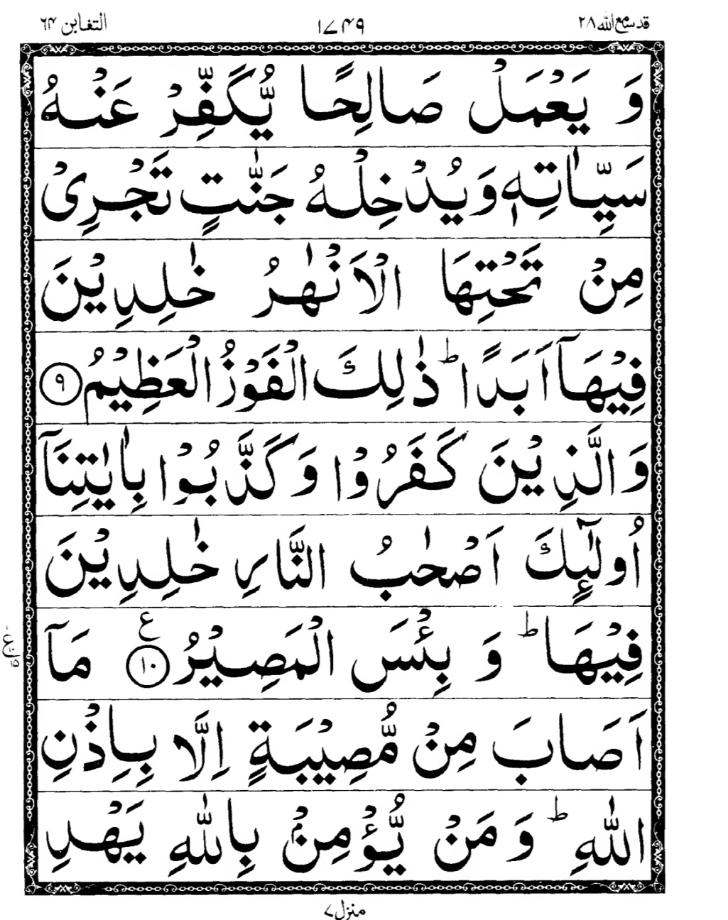 قد سمع الله ٢٨
١٧٤٩
التغابن ٦٤
وَ یَعْمَلْ صَالِحًا یُّكَفِّرْ عَنْهُ
سَیِّاٰتِهٖ وَیُدْخِلْهُ جَنّٰتٍ تَجْرِیْ
مِنْ تَحْتِهَا الْاَنْهٰرُ خٰلِدِیْنَ
فِیْهَاۤ اَبَدًا ؕ ذٰلِكَ الْفَوْزُ الْعَظِیْمُ ۹
وَالَّذِیْنَ كَفَرُوْا وَكَذَّبُوْا بِاٰیٰتِنَاۤ
اُولٰٓئِكَ اَصْحٰبُ النَّارِ خٰلِدِیْنَ
فِیْهَا ؕ وَ بِئْسَ الْمَصِیْرُ ۱۰ ع مَاۤ
اَصَابَ مِنْ مُّصِیْبَةٍ اِلَّا بِاِذْنِ
اللّٰهِ ؕ وَمَنْ یُّؤْمِنْۢ بِاللّٰهِ یَهْدِ
منزل ۷